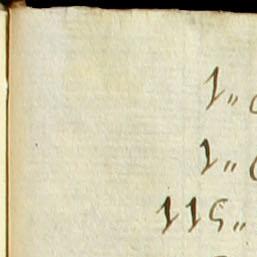 1„
1„
115„